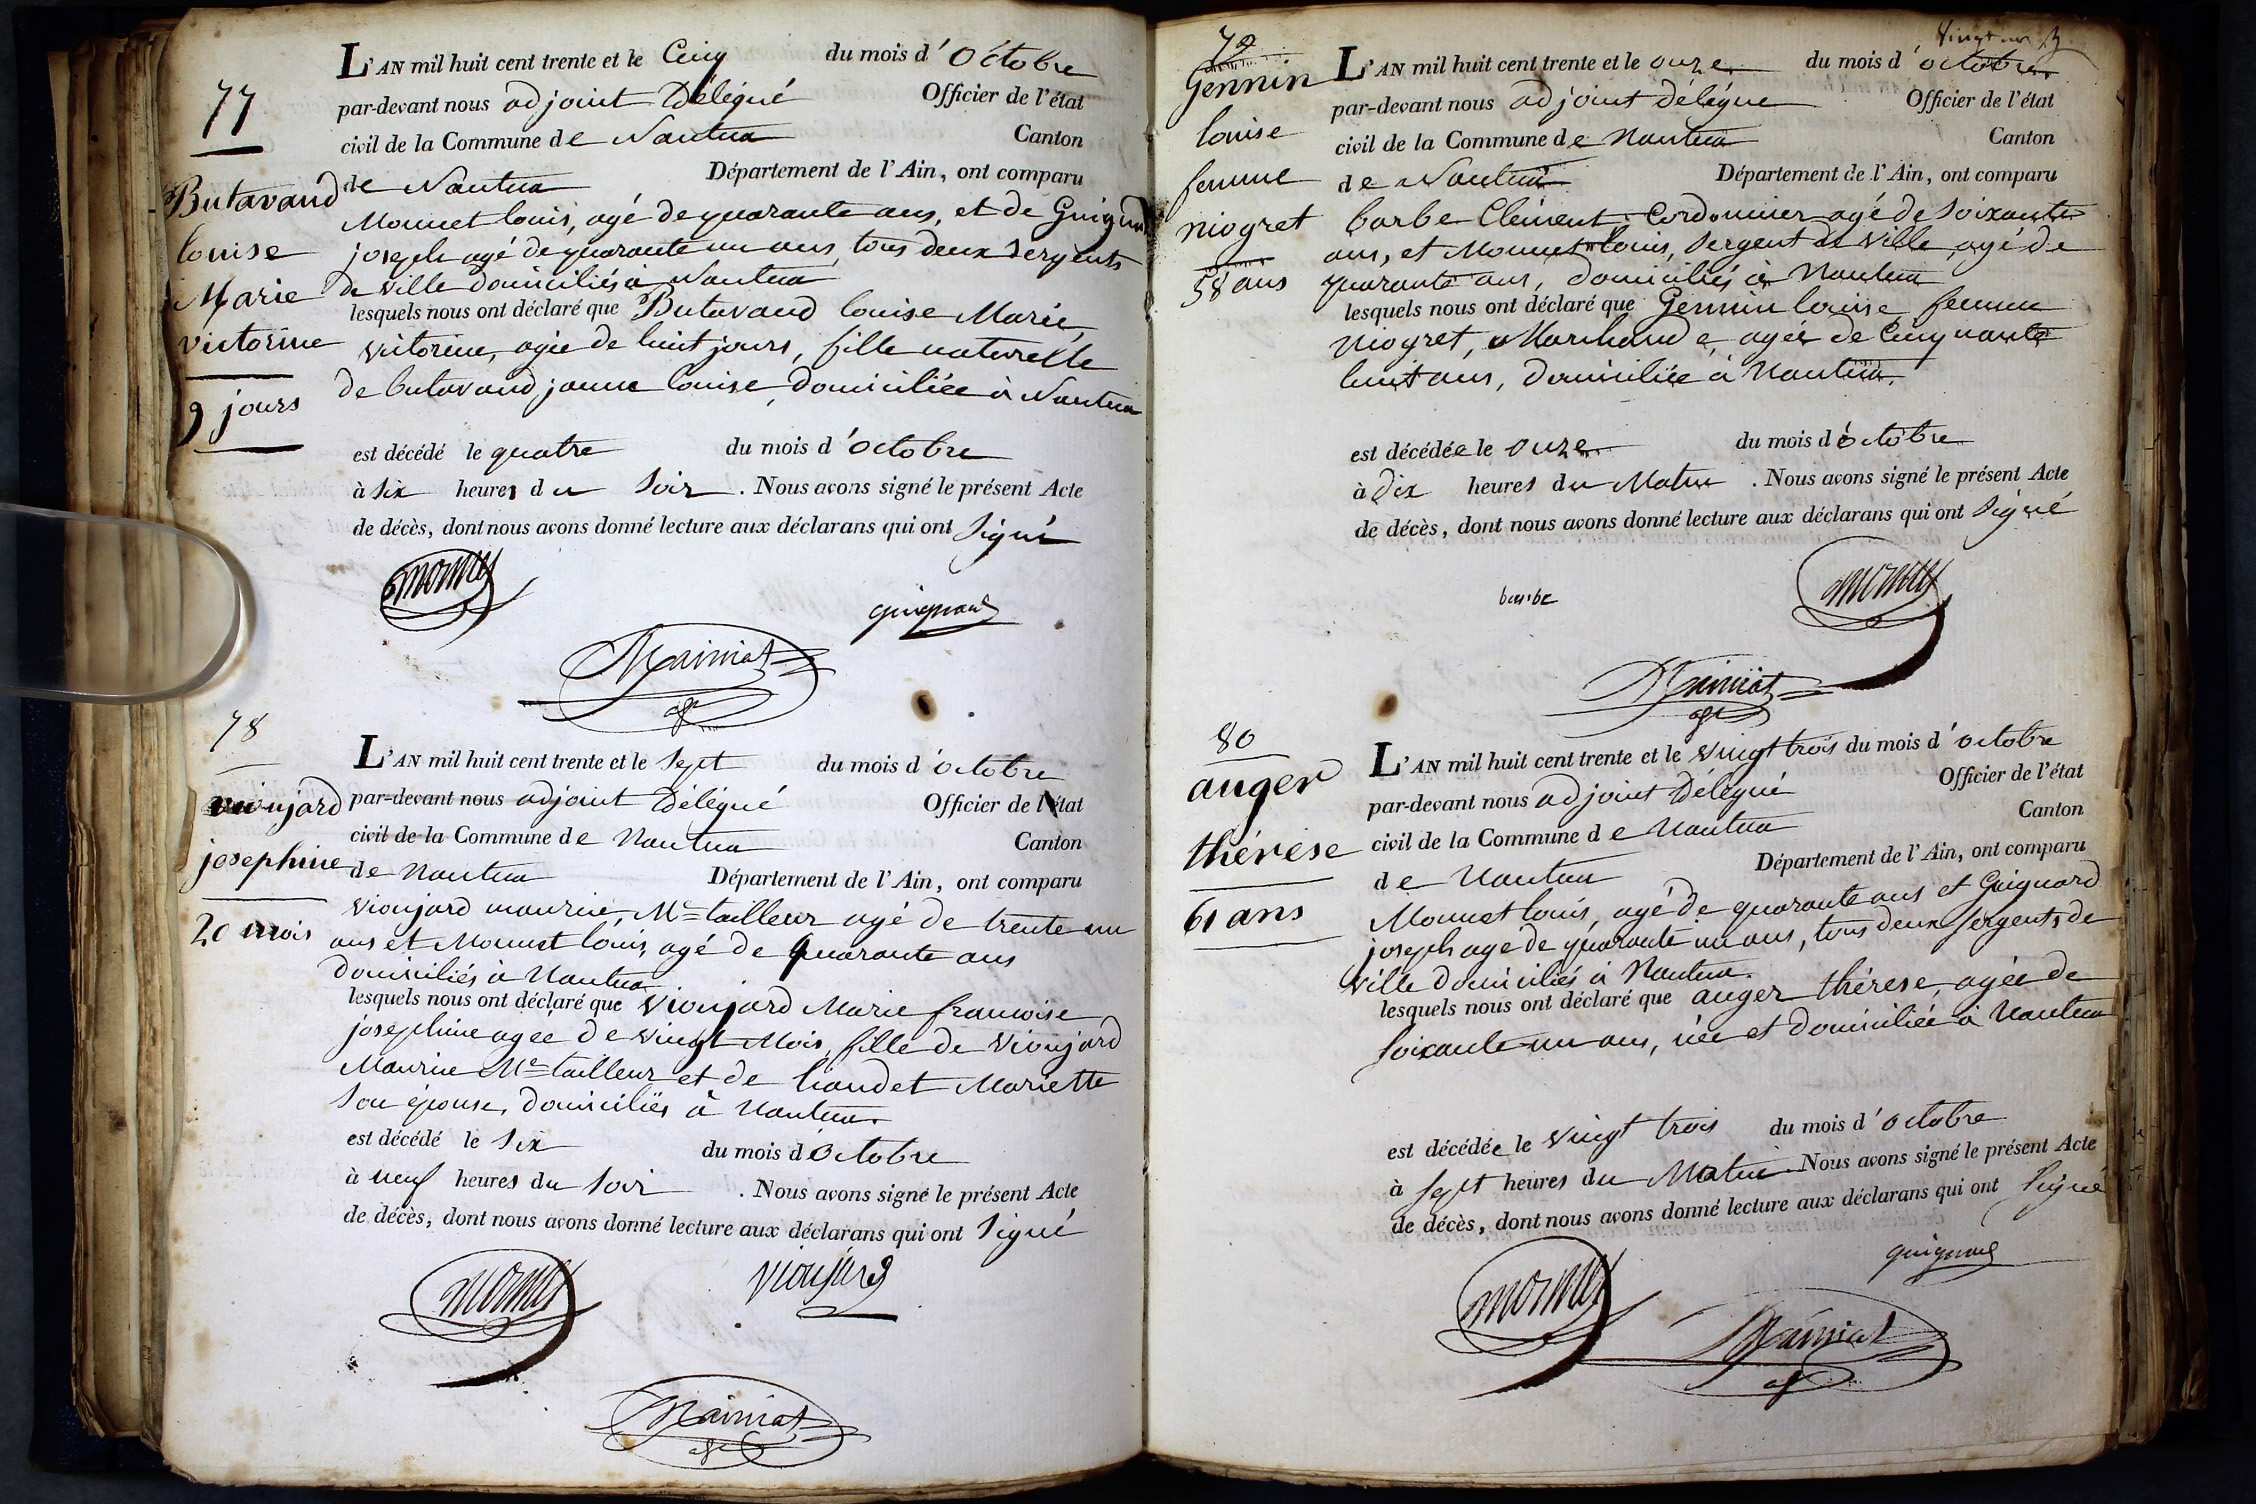 77
Butavand
louise
Marie
victorine
9 jours
L'AN mil huit cent trente et le Cinq du mois d'Octobre
par-devant nous adjoint Délégué Officier de l'état
civil de la Commune de Nantua Canton
de Nantua Département de l'Ain, ont comparu
Monnet louis, agé de quarante ans, et de Guignard
joseph agé de quarante un ans, tous deux sergents
de ville domiciliés à Nantua
lesquels nous ont déclaré que Butavand louise Marie
victorine, agée de huit jours, fille naturelle
de butavand jeanne louise, domiciliée à Nantua
est décédé le quatre du mois d'octobre
à Six heures du Soir. Nous avons signé le présent Acte
de décès, dont nous avons donné lecture aux déclarans qui ont Signé
monnet
guignard
78
vioujard
josephine
20 mois
L'AN mil huit cent trente et le Sept du mois d'octobre
par-devant nous adjoint Délégué Officier de l'état
civil de la Commune de Nantua Canton
de Nantua Département de l'Ain, ont comparu
vioujard maurice, Me tailleur agé de trente un
ans et Monnet louis, agé de quarante ans
domiciliés à Nantua
lesquels nous ont déclaré que vioujard Marie francoise
josephine agée de vingt Mois, fille de vioujard
Maurice Me tailleur et de Mariette
Son épouse, domiciliés à Nantua.
est décédé le Six du mois d'Octobre
à neuf heures du Soir. Nous avons signé le présent Acte
de décès, dont nous avons donné lecture aux déclarans qui ont Signé
monnet
vioujard
79
Gennin
louise
femme
niogret
58 ans
L'AN mil huit cent trente et le onze du mois d'octobre
par-devant nous adjoint délégué Officier de l'état
civil de la Commune de Nantua Canton
de Nantua Département de l'Ain, ont comparu
barbe Clément Cordonnier agé de Soixante
ans, et Monnet louis, Sergent de ville, agé de
quarante ans, domiciliés à Nantua
lesquels nous ont déclaré que Gennin louise femme
niogret, Marchande, agée de Cinquante
huit ans, domiciliée à Nantua.
est décédée le onze du mois d'octobre
à dix heures du Matin. Nous avons signé le présent Acte
de décès, dont nous avons donné lecture aux déclarans qui ont Signé
barbe
monnet
80
auger
thérèse
61 ans
L'AN mil huit cent trente et le vingt trois du mois d'octobre
par-devant nous adjoint Délégué Officier de l'état
civil de la Commune de Nantua Canton
de Nantua Département de l'Ain, ont comparu
Monnet louis, agé de quarante ans et Guignard
joseph agé de quarante un ans, tous deux Sergents de
ville domiciliés à Nantua.
lesquels nous ont déclaré que auger thérèse, agée de
Soixante un ans, née et domiciliée à Nantua
est décédée le vingt trois du mois d'octobre
à Sept heures du Matin. Nous avons signé le présent Acte
de décès, dont nous avons donné lecture aux déclarans qui ont Signé
guignard
monnet